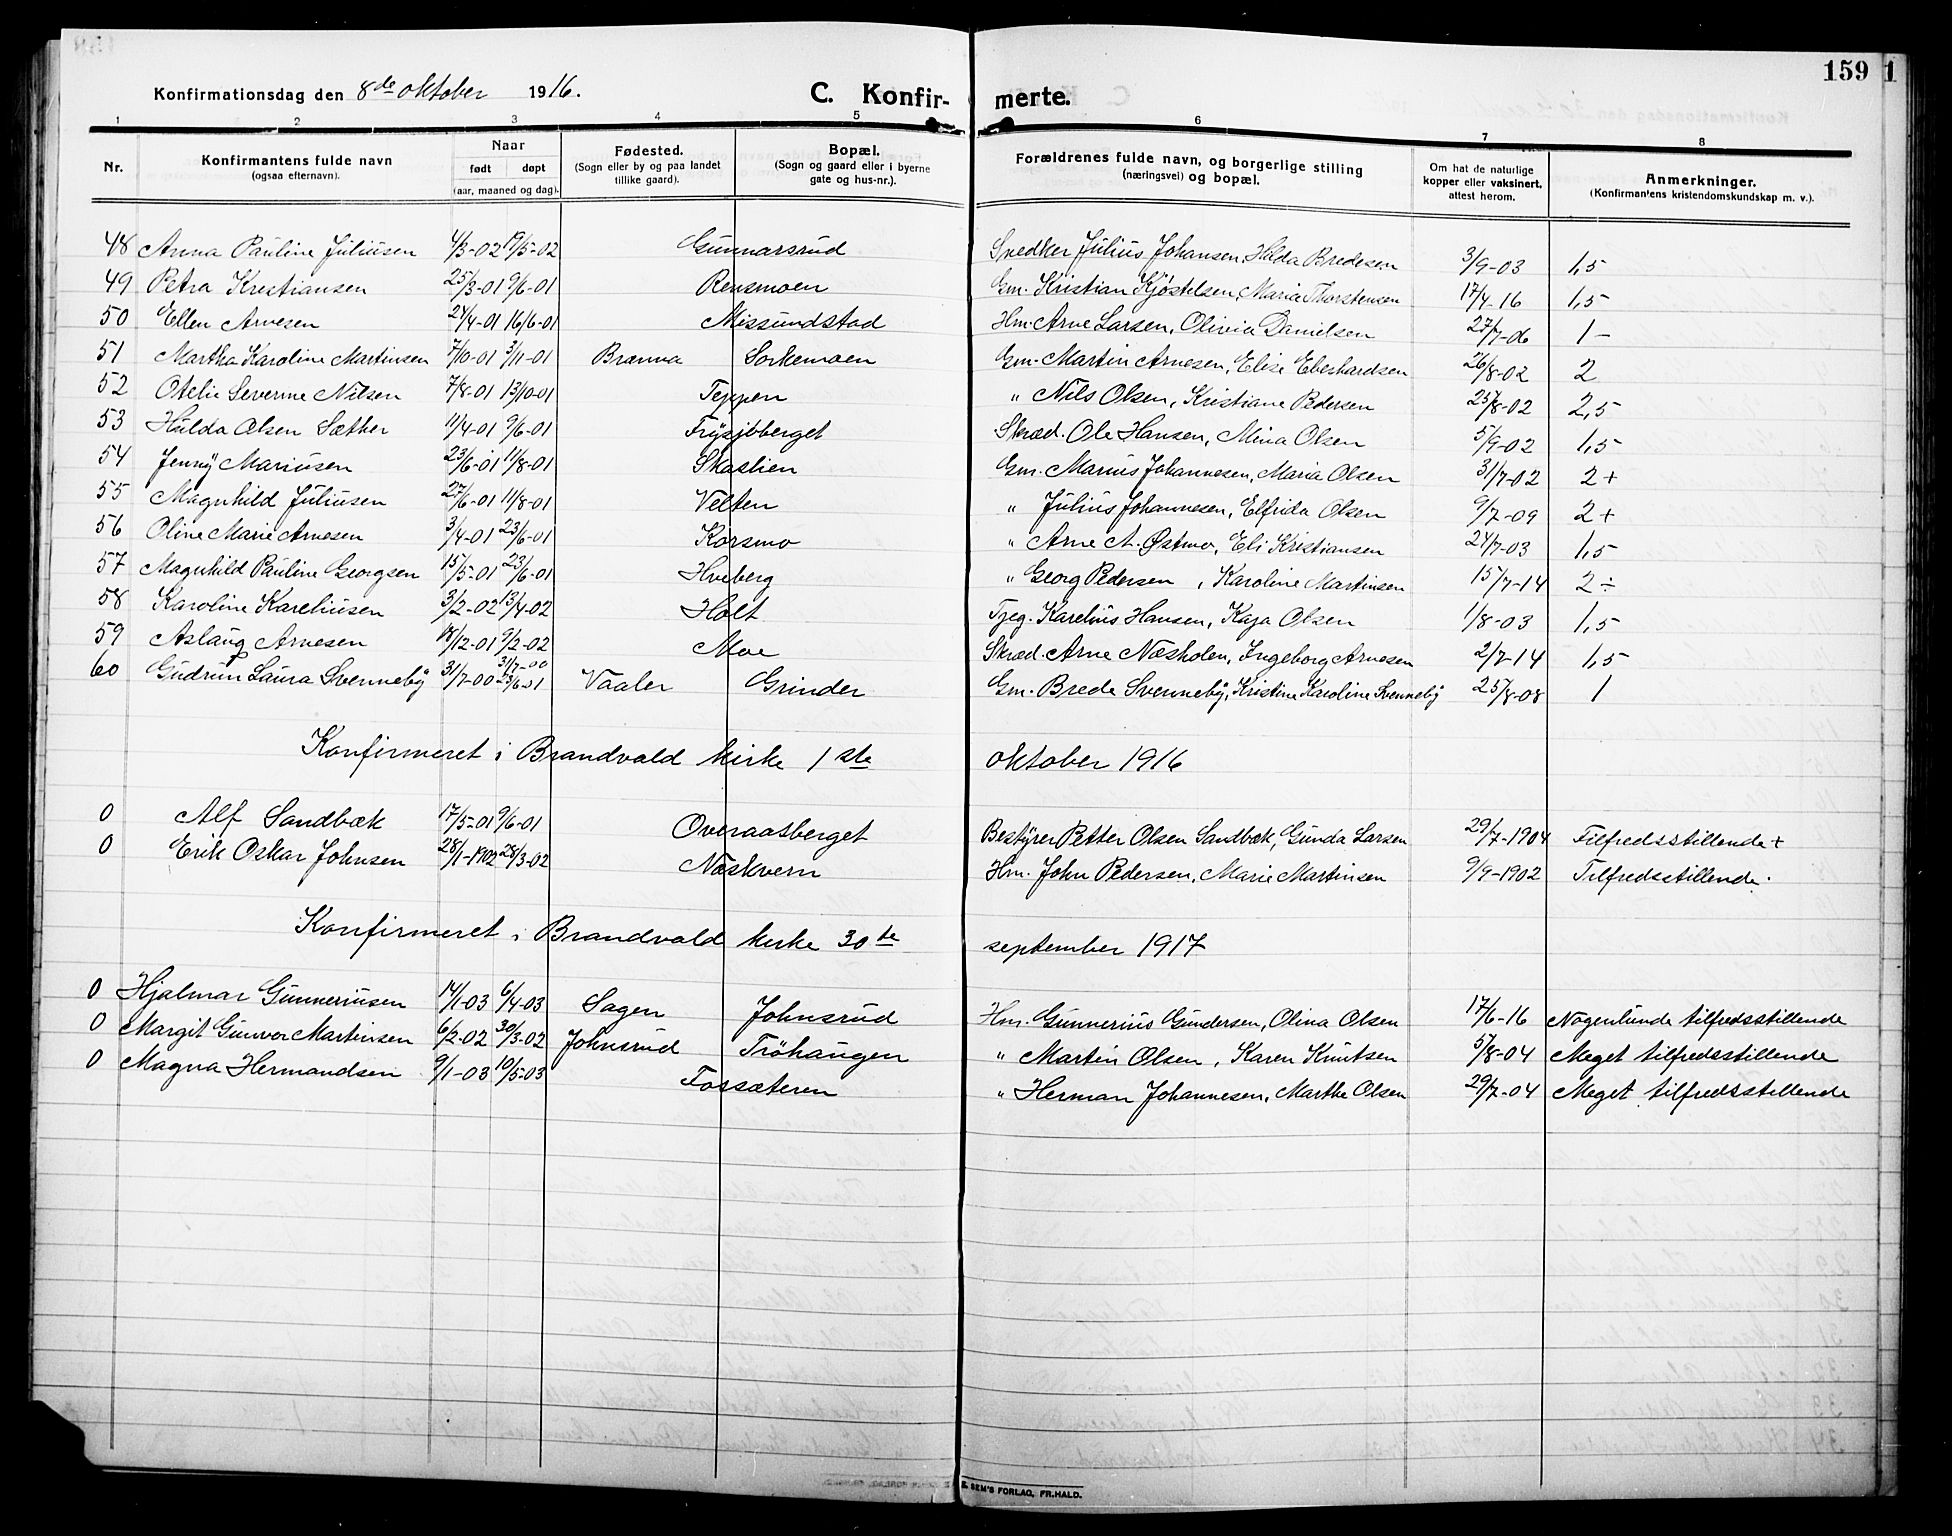 159 1
Konfirmationsdag den 8de oktober 1916. C. Konfirmerte.
1 2 3 4 5 6 7 8
Nr. Konfirmantens fulde navn (ogsaa efternavn). Naar født døpt (aar, maaned og dag). Fødested. (Sogn eller by og paa landet tillike gaard). Bopæl. (Sogn og gaard eller i byerne gate og hus-nr.). Forældrenes fulde navn, og borgerlige stilling (næringsvei) og bopæl. Om hat de naturlige kopper eller vaksinert, attest herom. Anmerkninger. (Konfirmantens kristendomskundskap m. v.).
48 Anna Pauline Juliusen 4/3-02 19/5-02 Gunnarsrud Snedker Julius Johansen, Hilda Bredesen 3/9-03 1,5
49 Petra Kristiansen 25/3-01 9/6-01 Rensmoen Gm. Kristian Kjøstelsen, Maria Thorstensen 17/4-16 1,5
50 Ellen Arnesen 24/4-01 16/6-01 Missundstad Hm. Arne Larsen, Olivia Danielsen 27/7-06 1-
51 Martha Karoline Martinsen 7/10-01 3/11-01 Brænna Sorkemoen Gm. Martin Arnesen, Elise Eberhardsen 26/8-02 2
52 Otelie Severine Nilsen 7/8-01 13/10-01 Teppen " Nils Olsen, Kristiane Pedersen 25/8-02 2,5
53 Hulda Olsen Sæther 11/4-01 9/6-01 Frysjøberget Skræd. Ole Hansen, Mina Olsen 5/9-02 1,5
54 Jenny Mariusen 23/6-01 11/8-01 Skaslien Gm. Marius Johannesen, Maria Olsen 31/7-02 2+
55 Magnhild Juliusen 27/6-01 11/8-01 Velten " Julius Johannesen, Elfrida Olsen 9/7-09 2+
56 Oline Marie Arnesen 3/4-01 23/6-01 Korsmo " Arne A. Østmo, Eli Kristiansen 24/7-03 1,5
57 Magnhild Pauline Georgsen 15/5-01 23/6-01 Hveberg " Georg Pedersen, Karoline Martinsen 15/7-14 2÷
58 Karoline Kareliusen 3/2-02 13/4-02 Holt Tjeg. Karelius Hansen, Kaja Olsen 1/8-03 1,5
59 Aslaug Arnesen 18/12-01 9/2-02 Moe Skræd. Arne Næsholen, Ingeborg Arnesen 2/7-14 1,5
60 Gudrun Laura Svenneby 31/7-00 Vaaler Grinder Gm. Brede Svenneby, Kristine Karoline Svenneby 25/8-08 1
Konfirmeret i Brandvald kirke 1ste oktober 1916
0 Alf Sandbæk 17/5-01 9/6-01 Overaasberget Bestyrer Petter Olsen Sandbæk, Gunda Larsen 29/7-1904 Tilfredsstillende+
0 Erik Oskar Johnsen 28/1-1902 28/3-02 Næskvern Hm. John Pedersen, Marie Martinsen 9/9-1902 Tilfredsstillende.
Konfirmeret i Brandvald kirke 30te september 1917
0 Hjalmar Gunneriusen 14/1-03 6/4-03 Sagen Johnsrud Hm. Gunnerius Gundersen, Olina Olsen 17/6-16 Nogenlunde tilfredsstillende
0 Margit Gunvor Martinsen 6/2-02 30/3-02 Johnsrud Trøhaugen " Martin Olsen, Karen Knutsen 5/8-04 Meget tilfredsstillende
0 Magna Hermandsen 9/1-03 10/5-03 Fossæteren " Herman Johannesen, Marthe Olsen 29/7-04 Meget tilfredsstillende
SEM'S FORLAG, FR.HALD.